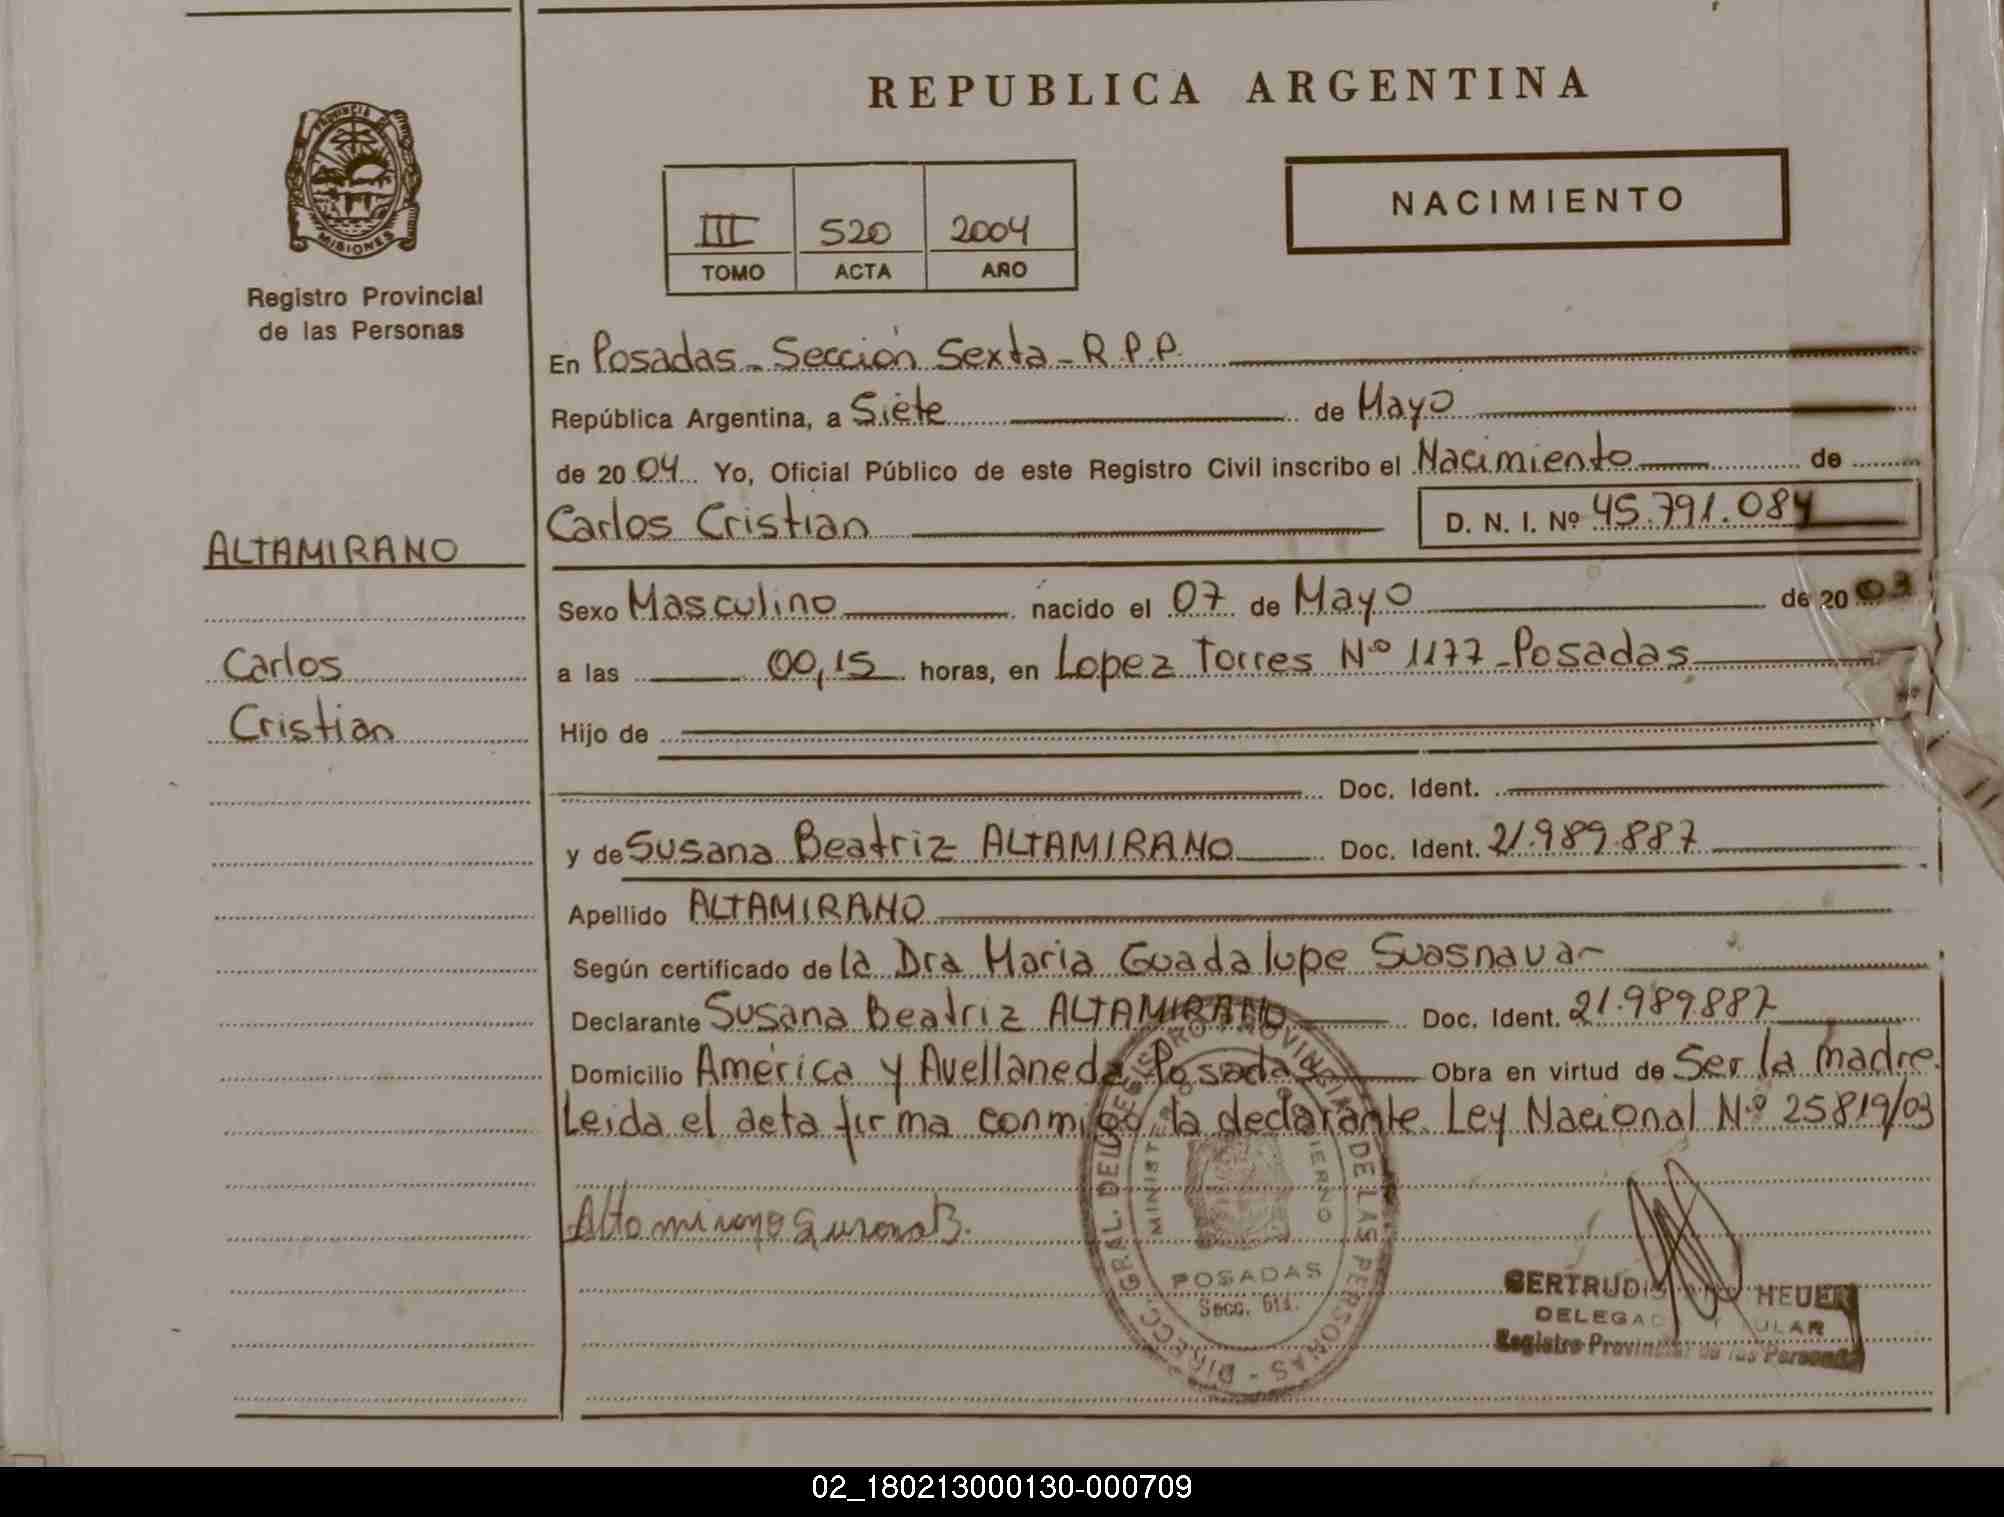 REPUBLICA ARGENTINA
PROVINCIA DE
MISIONES
Registro Provincial
de las Personas
III 520 2004
TOMO ACTA AÑO
NACIMIENTO
En Posadas - Sección Sexta - R.P.P.
República Argentina, a Siete de Mayo
de 2004 Yo, Oficial Público de este Registro Civil inscribo el Nacimiento de
ALTAMIRANO
Carlos Cristian D. N. I. Nº 45.791.084
Sexo Masculino nacido el 07 de Mayo de 2003
Carlos
a las 00,15 horas, en Lopez Torres Nº 1177 - Posadas
Cristian
Hijo de
Doc. Ident.
y de Susana Beatriz ALTAMIRANO Doc. Ident. 21.989.887
Apellido ALTAMIRANO
Según certificado de la Dra Maria Guadalupe Suasnavar
Declarante Susana Beatriz ALTAMIRANO Doc. Ident. 21.989.887
Domicilio América y Avellaneda Posadas Obra en virtud de Ser la madre.
Leida el acta firma conmigo, la declarante. Ley Nacional Nº 25819/03
Altamirano Susana B.
DIRECC. GRAL. DEL REGISTRO PROVINCIAL DE LAS PERSONAS -
POSADAS
Secc. 6ta.
GERTRUDIS HEUER
DELEGAD ULAR
Registro Provincial de las Personas
02_180213000130-000709